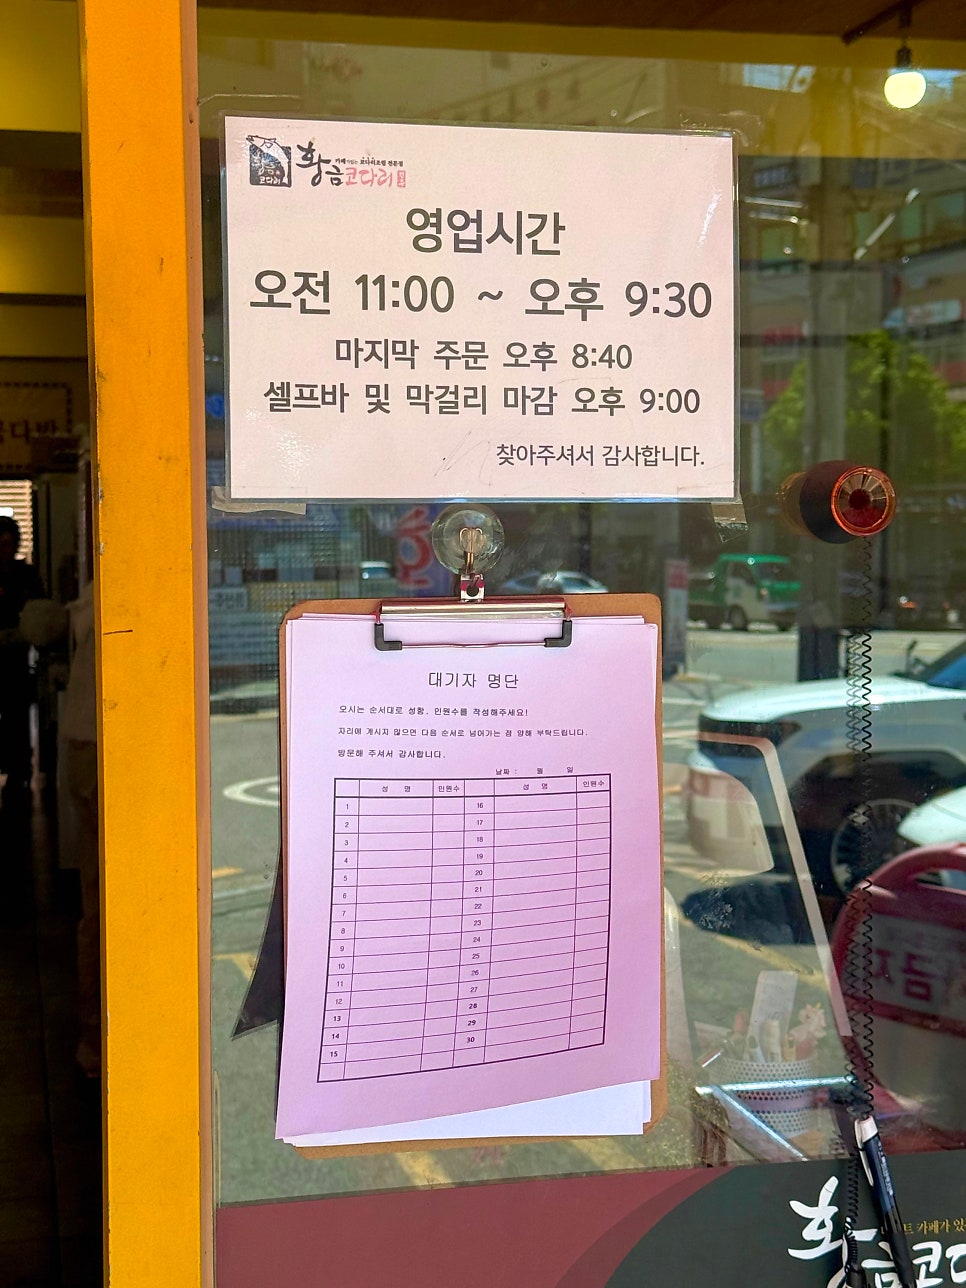 황금
코다리
카페가 있는 코다리조림 전문점
황금코다리
영업시간
오전 11:00 ~ 오후 9:30
마지막 주문 오후 8:40
셀프바 및 막걸리 마감 오후 9:00
찾아주셔서 감사합니다.
대기자 명단
오시는 순서대로 성함, 인원수를 작성해주세요!
자리에 계시지 않으면 다음 순서로 넘어가는 점 양해 부탁드립니다.
방문해 주셔서 감사합니다.
날짜 : 월 일
성 명 인원수 성 명 인원수
1 16
2 17
3 18
4 19
5 20
6 21
7 22
8 23
9 24
10 25
11 26
12 27
13 28
14 29
15 30
카페가 있
황금코다